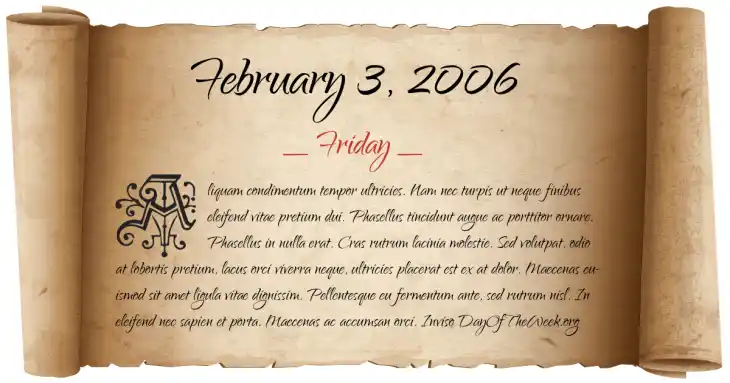 February 3, 2006
__ Friday __
Aliquam condimentum tempor ultricies. Nam nec turpis ut neque finibus
eleifend vitae pretium dui. Phasellus tincidunt augue ac porttitor ornare.
Phasellus in nulla erat. Cras rutrum lacinia molestie. Sed volutpat, odio
at lobortis pretium, lacus orci viverra neque, ultricies placerat est ex at dolor. Maecenas eu-
ismod sit amet ligula vitae dignissim. Pellentesque eu fermentum ante, sed rutrum nisl. In
eleifend nec sapien et porta. Maecenas ac accumsan orci. Inviso DayOfTheWeek.org